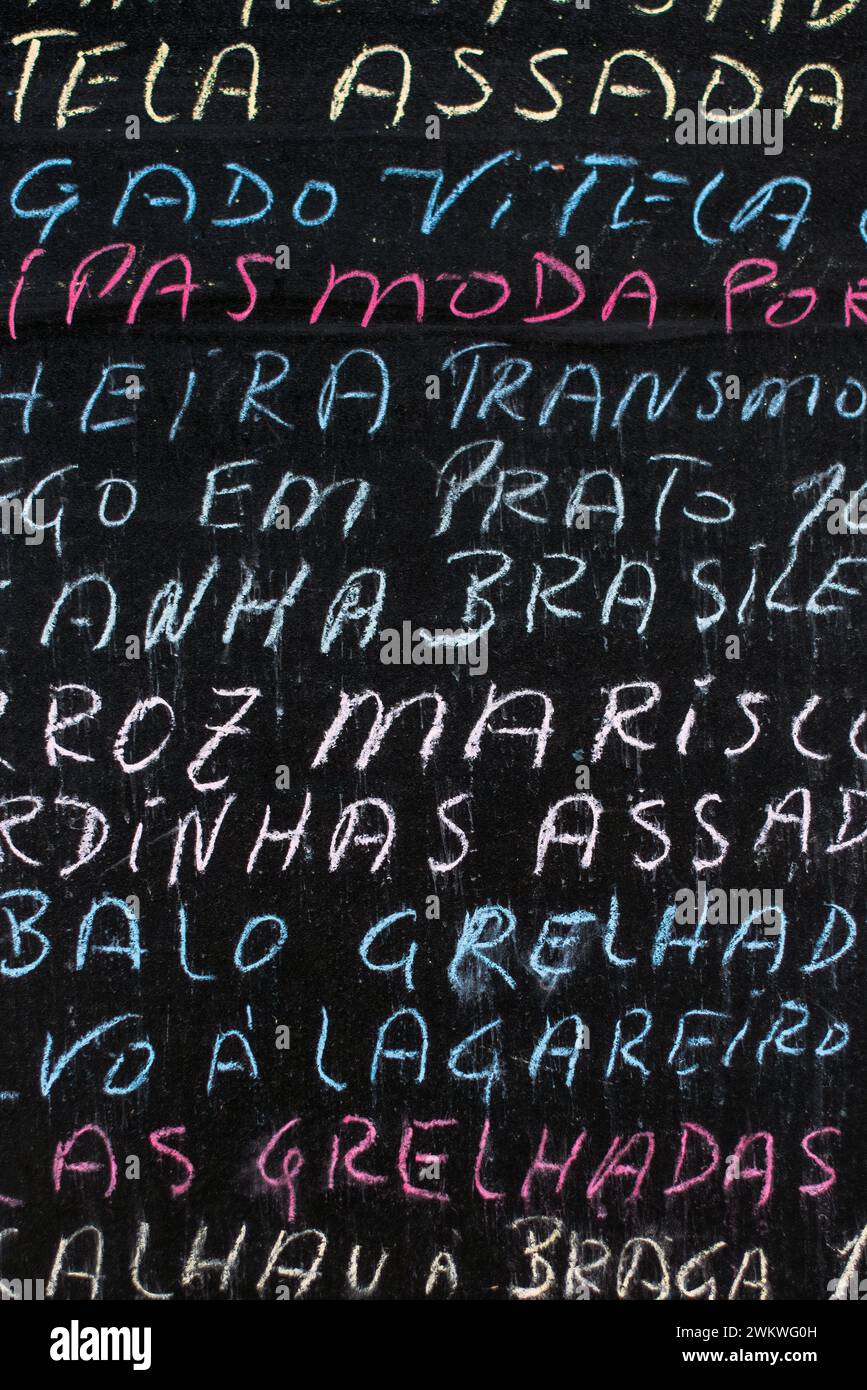 TELA ASSADA
GADO VITELA
IPAS MODA POR
HEIRA TRANSMO
EGO EM PRATO
ANHA BRASILE
RROZ MARISCO
RDINHAS ASSAD
BALO GRELHAD
LVO À LAGAREIRO
LAS GRELHADAS
CALHAU À BRAGA
alamy
Image ID: 2WKWG0H
www.alamy.com